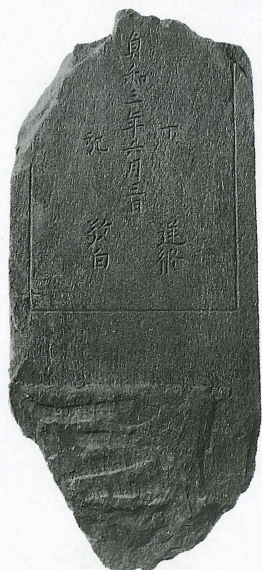 丁 逆修
貞和三年六月三日
亥 敬白